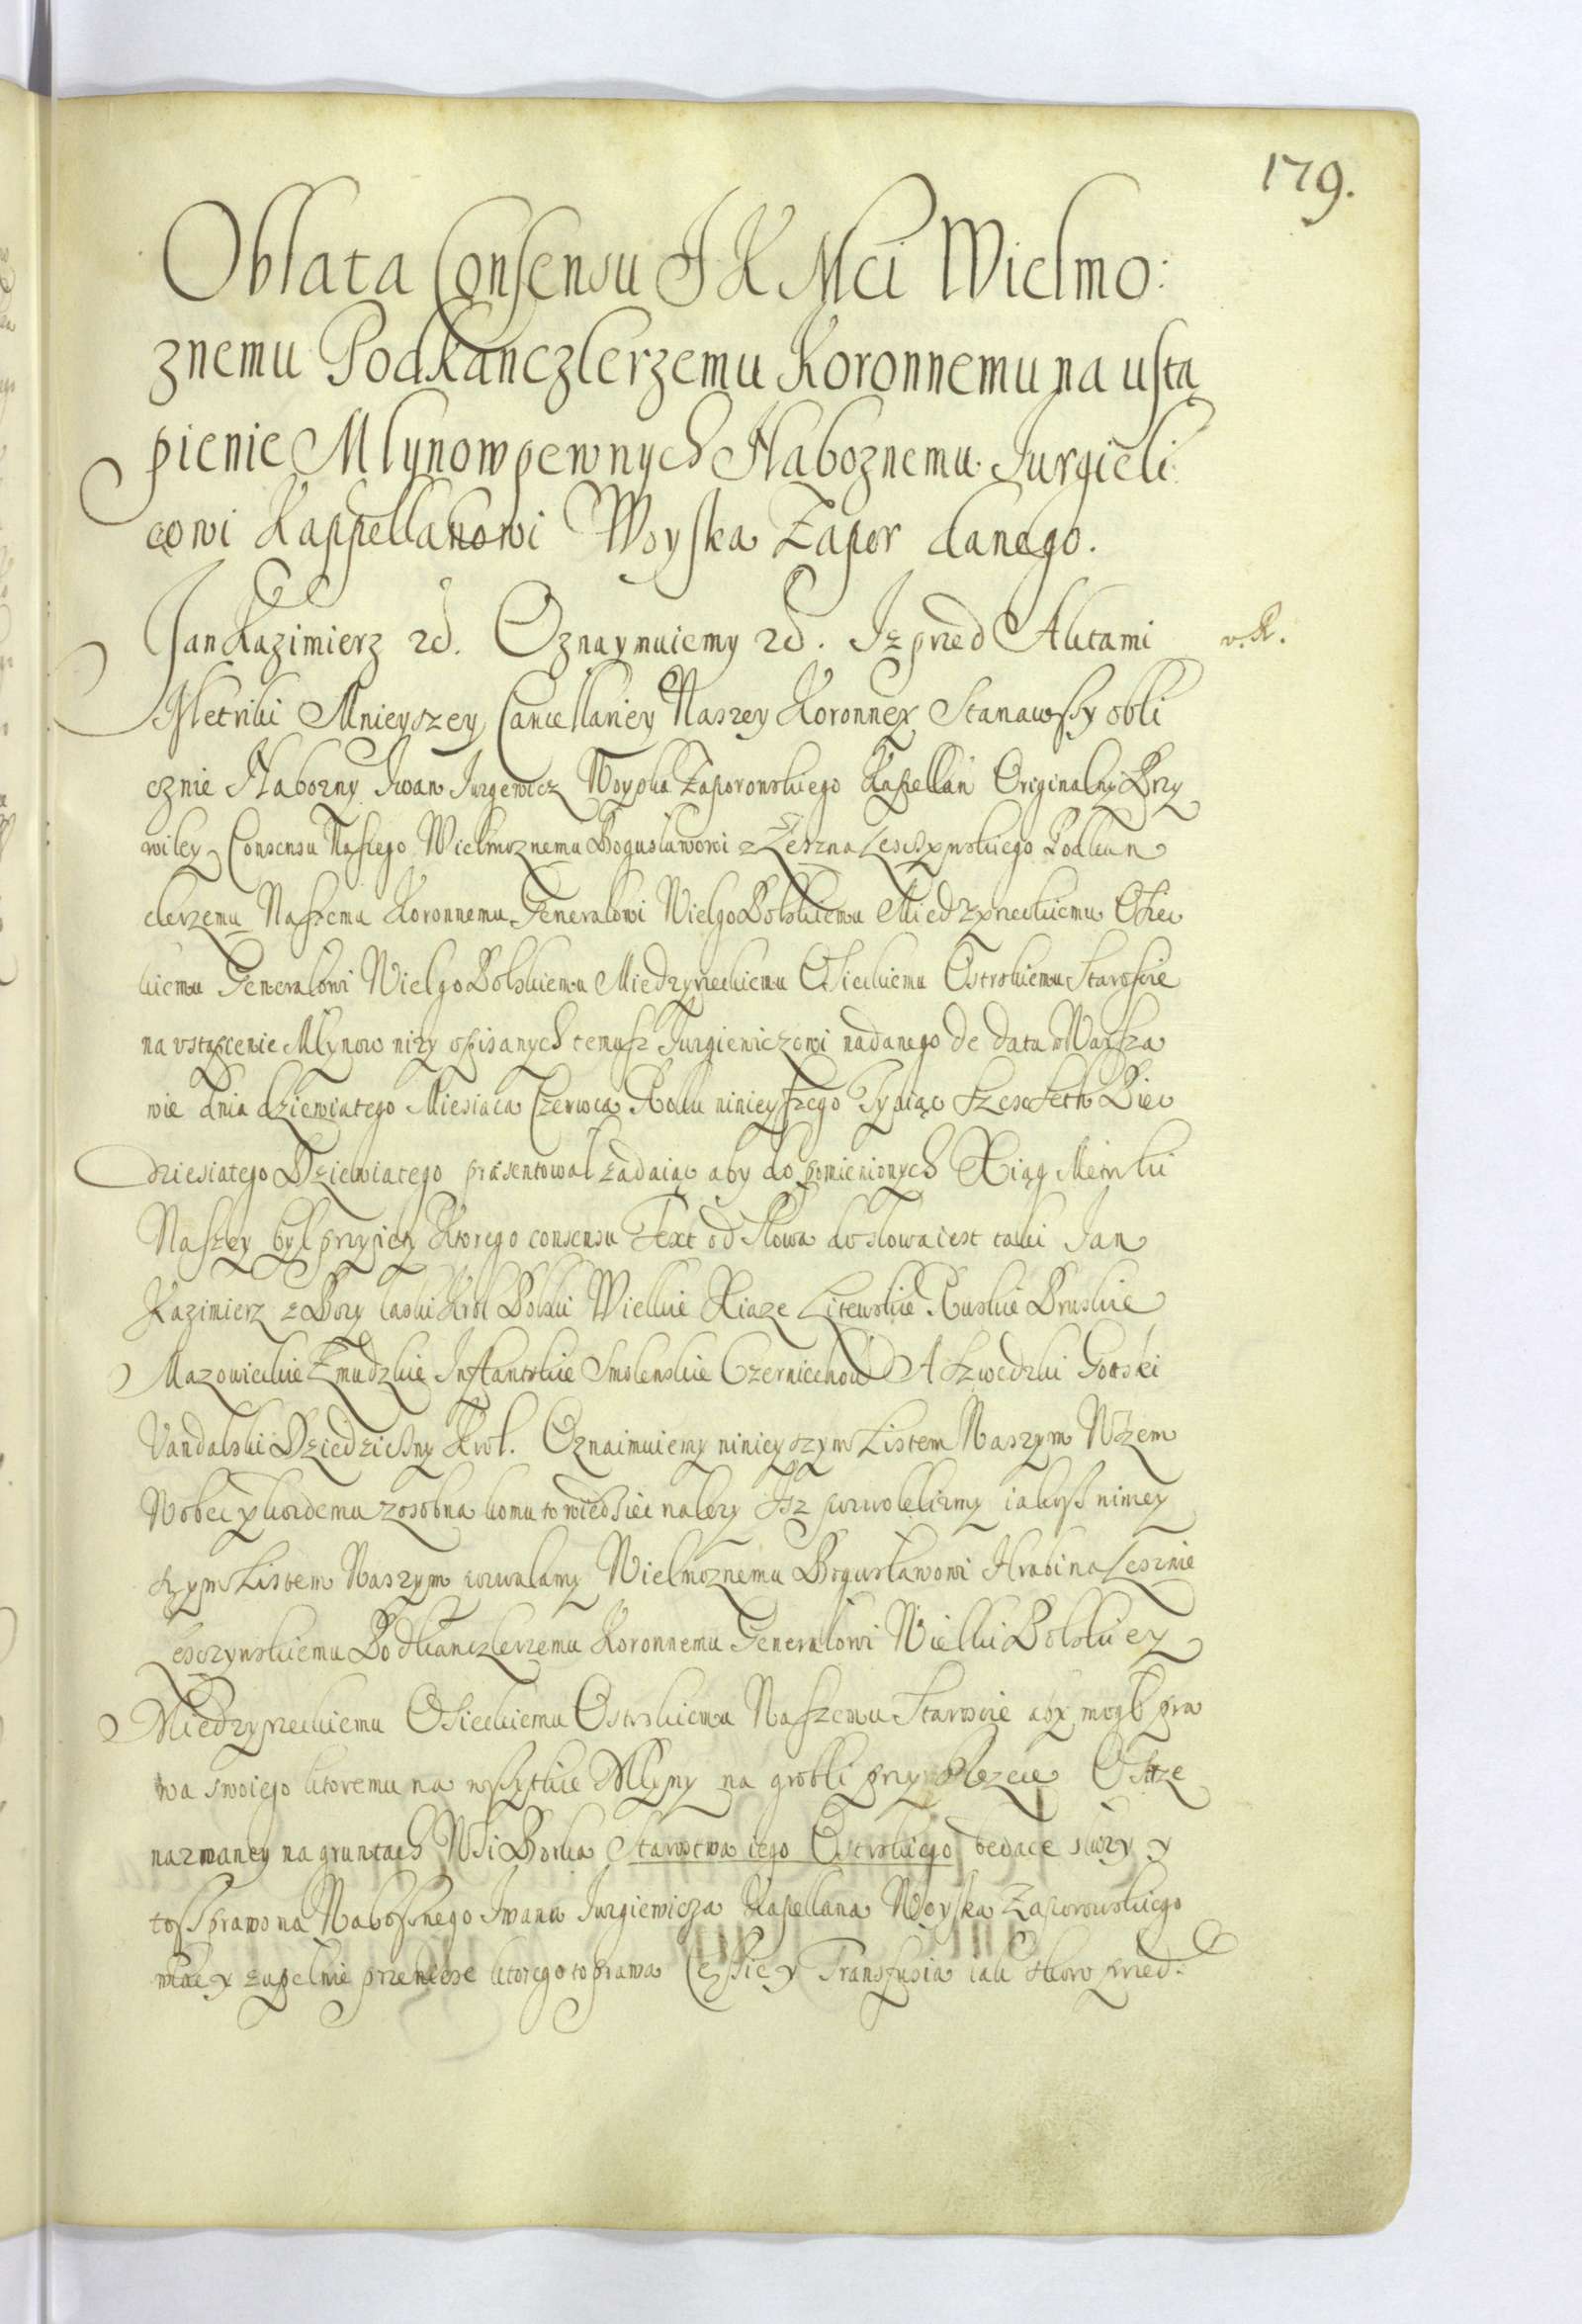 179.
Oblata Consensu J K Mci Wielmo:
znemu Podkanczlerzemu Koronnemu na ustą
pienie Mlynow pewnych Naboznemu Jurgieli
cowi Kappellanowi Woyska Zapor danego.
Jan Kazimierz 2d. Oznaymuiemy 2d. Iz przed Aktami v. R.
Metriki Mnieyszey Cancellariey Naszey Koronney Stanawszy obli
cznie Nabozny Iwan Jurgewicz Woyska Zaporowskiego Kapellan Originalny Przy
wiley Consensu Naszego Wielmoznemu Bogusławowi z Leszna Lesczynskiego Podkan
clerzemu Naszemu Koronnemu Generalowi WielgoPolskiemu Miedzyrzeckiemu Osiec
kiemu Generalowi WielgoPolskiemu Miedzyrzeckiemu Osieckiemu Ostrskiemu Staroscie
na vstąpienie Mlynow nizy opisanych temusz Jurgiewiczowi nadanego de data w Warsza
wie dnia dziewiatego Miesiaca Czerwca Roku ninieyszego Tysiąc Szescset Piec
dziesiatego Dziewiatego präsentowal ządaiąc aby do pomienionych Xiąg Metriki
Naszey był przyięty Ktorego consensu Text od słowa do słowa iest taki Jan
Kazimierz z Bozy laski Krol Polski Wielkie Xiaze Litewskie Ruskie Pruskie
Mazowieckie Zmudzkie Inflantskie Smolenskie Czerniechow A Szwedzki Gotski
Vandalski Dziedziczny Krol. Oznaimuiemy ninieyszym Listem Naszym Wszem
Wobec y kozdemu zosobna komu to wiedziec nalezy Isz pozwolelizmy iakosz niniey
szym Listem Naszym pozwalamy Wielmoznemu Bogusławowi Hrabi na Lesznie
Lesczynskiemu Podkanczlerzemu Koronnemu Generalowi Wielki Polskiey
Miedzyrzeckiemu Osieckiemu Ostrskiemu Naszemu Staroscie aby mogł pra
wa swoiego ktoremu na wszytkie Mlyny na grobli przy rzece Ostrze
nazwaney na gruntach Wsi Borka Starostwa iego Ostrskiego bedace słuzy y
tosz prawo na Nabosznego Iwana Jurgiewicza Kapellana Woyska Zaporowskiego
wlac y zupelnie przeniesc ktorego to prawa Cessie y Transfusia iako skoro przed: